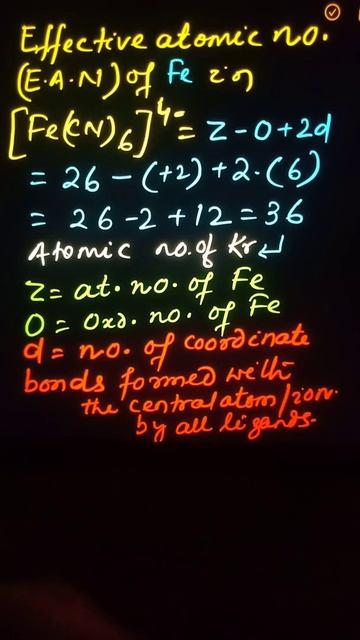 Effective atomic no.
(E.A.N) of Fe in
[Fe(CN)6]4- = Z-O+2d
= 26 - (+2) + 2.(6)
= 26-2+12=36
Atomic no. of Kr↲
Z= at. no. of Fe
O = Oxd. no. of Fe
d = no. of coordinate
bonds formed with
the central atom/ion.
by all ligands.